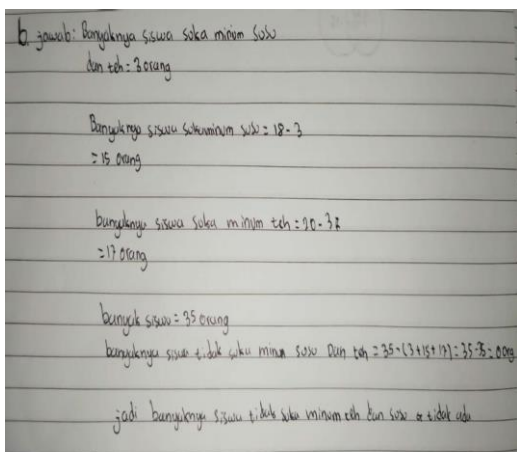 b. jawab: Banyaknya siswa suka minum susu
dan teh = 3 orang
Banyaknya siswa suka minum susu = 18 - 3
= 15 orang
banyaknya siswa suka minum teh = 20 - 3
= 17 orang
banyak siswa = 35 orang
banyaknya siswa tidak suka minum susu Dan teh = 35 - (3+15+17) = 35-35 = 0 orng
jadi banyaknya siswa tidak suka minum teh dan susu tidak ada